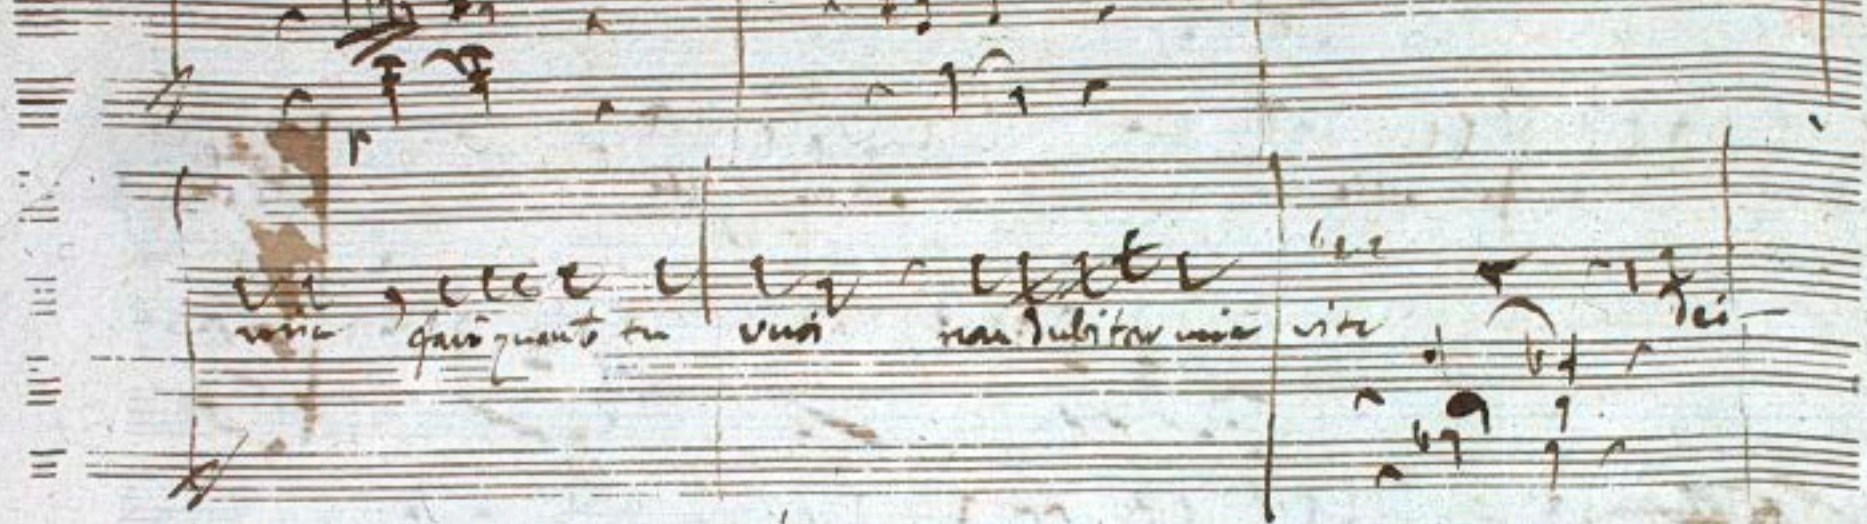 mia farò quanto tu vuoi non dubitar mia vita
dei-